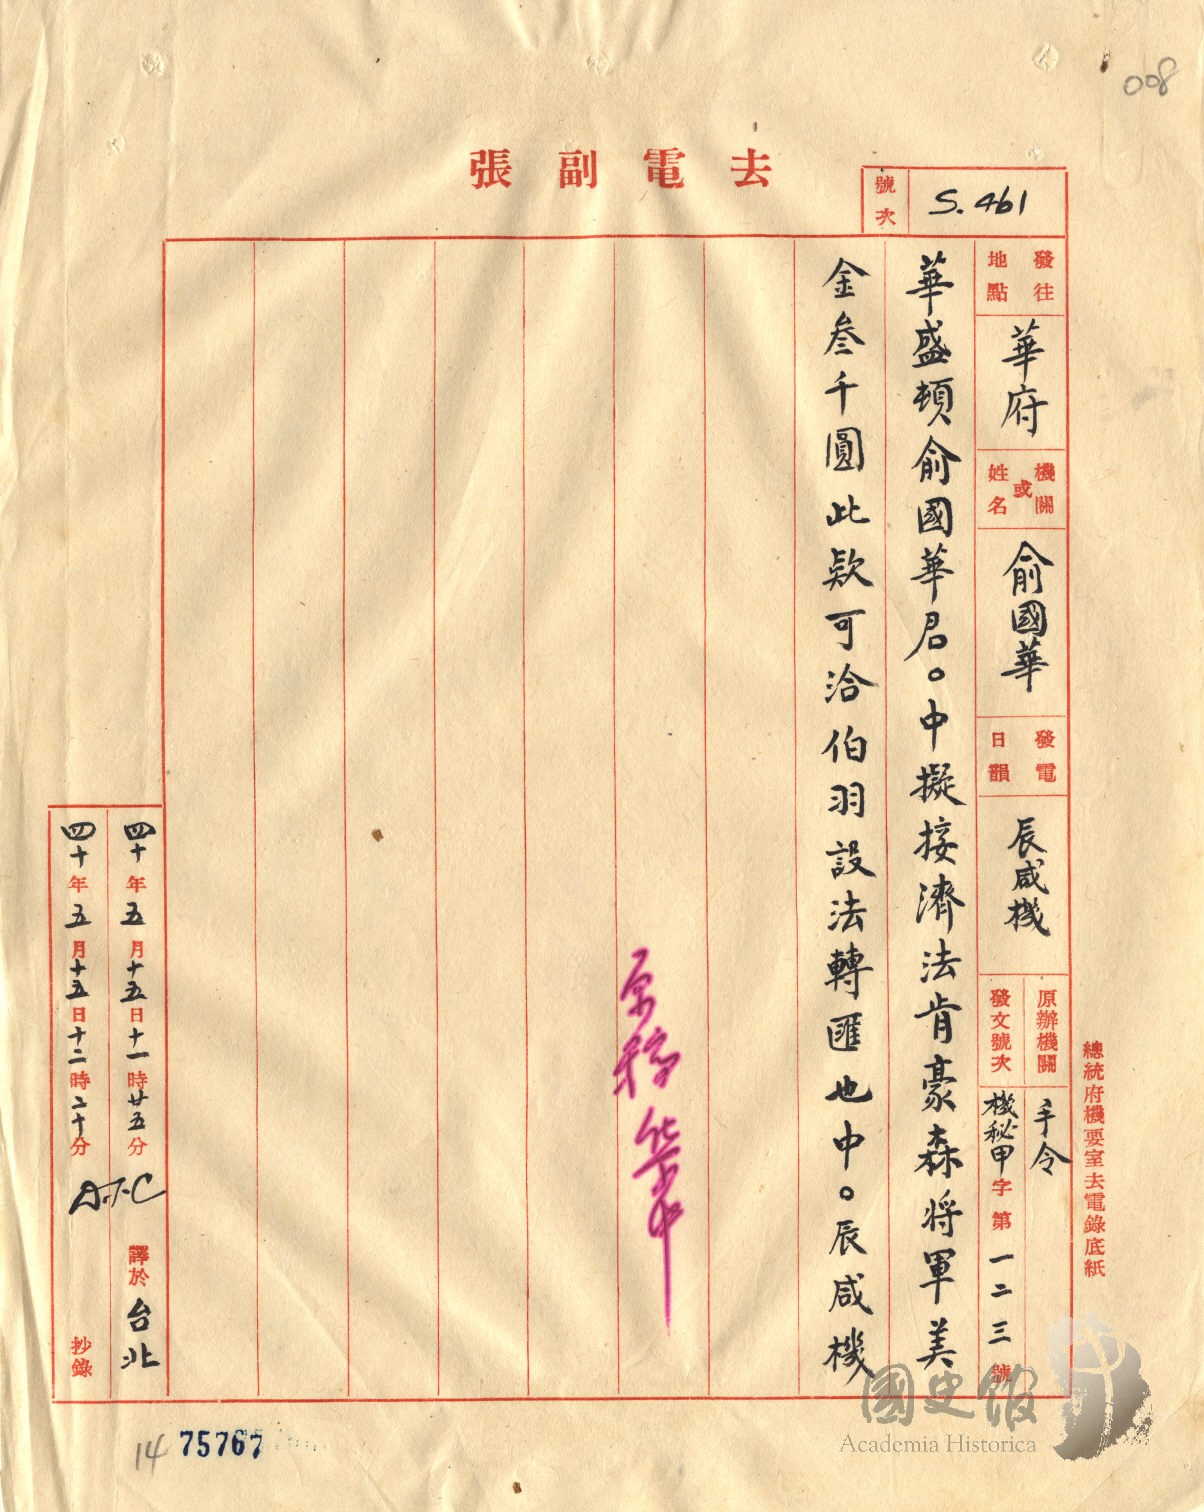 008
去電副張
號次
S. 461
發往地點
華府
機關或姓名
俞國華
發電日韻
辰咸機
原辦機關
手令
發文號次
機秘甲字第一二三號
總統府機要室去電錄底紙
華盛頓俞國華君。中擬接濟法肯豪森將軍美
金叁千圓此欵可洽伯羽設法轉匯也中。辰咸機
四十年五月十五日十一時廿五分
譯於台北
四十年五月十五日十二時二十分
抄錄
14
75767
國史館
Academia Historica